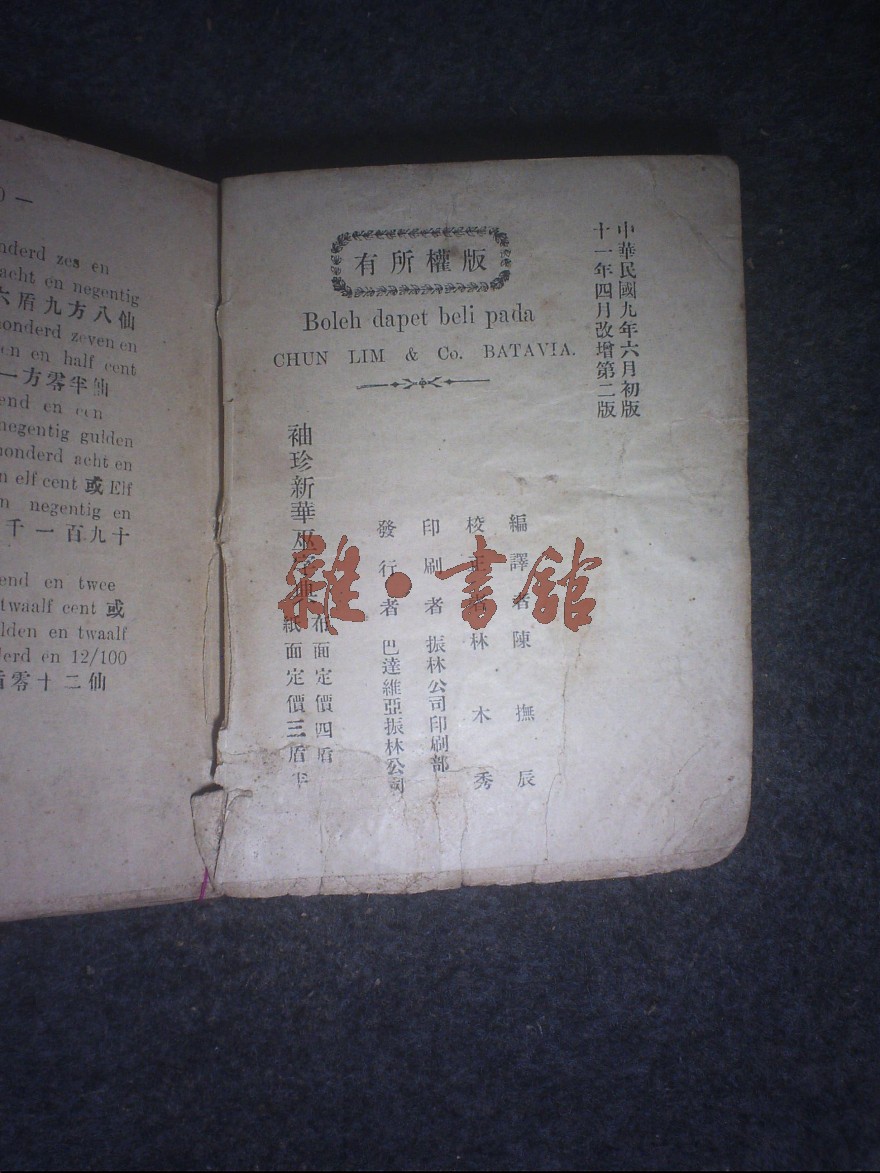 0 —
nderd zes en
acht en negentig
六盾九方八仙
honderd zeven en
en en half cent
一方零半仙
end en een
negentig gulden
honderd acht en
n elf cent 或 Elf
n negentig en
千一百九十
end en twee
twaalf cent 或
lden en twaalf
derd en 12/100
盾零二十仙
版權所有
Boleh dapet beli pada
CHUN LIM & Co. BATAVIA.
中華民國九年六月初版
十一年四月改增第二版
編譯者陳撫辰
校正者林木秀
印刷者振林公司印刷部
發行者巴達維亞振林公司
袖珍新華巫字典
布面定價四盾
紙面定價三盾半
雜·書館